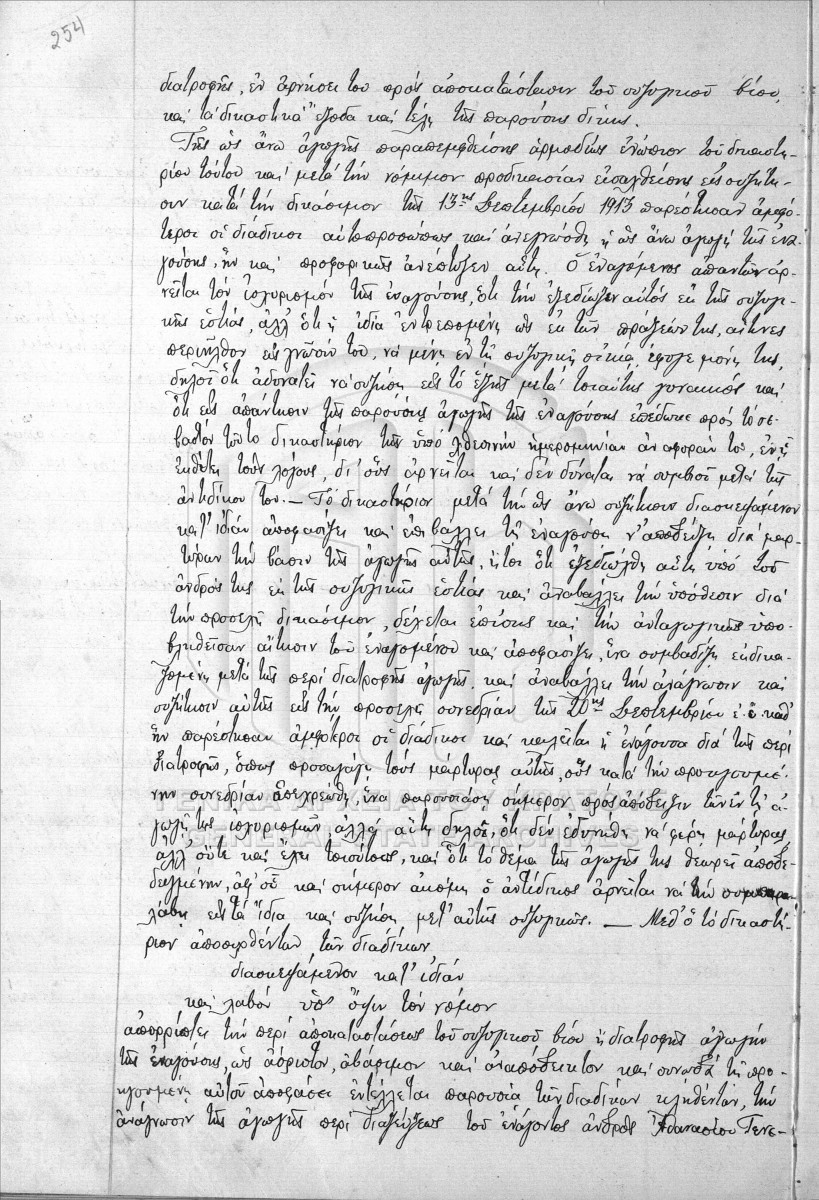 254
διατροφῆς, ἐν ἀρνήσει του πρὸς ἀποκατάστασιν τοῦ συζυγικοῦ βίου,
καὶ τὰ δικαστικὰ ἔξοδα καὶ τέλη τῆς παρούσης δίκης.
Τῆς ὡς ἄνω ἀγωγῆς παραπεμφθείσης ἁρμοδίως ἐνώπιον τοῦ δικαστη-
ρίου τούτου καὶ μετὰ τὴν νόμιμον προδικασίαν εἰσαχθείσης εἰς συζήτη-
σιν κατὰ τὴν δικάσιμον τῆς 13ης Σεπτεμβρίου 1913 παρέστησαν ἀμφό-
τεροι οἱ διάδικοι αὐτοπροσώπως καὶ ἀνεγνώσθη ἡ ὡς ἄνω ἀγωγὴ τῆς ἐνα-
γούσης, ἣν καὶ προφορικῶς ἀνέπτυξεν αὕτη. Ὁ ἐναγόμενος ἀπαντῶν ἀρ-
νεῖται τὸν ἰσχυρισμὸν τῆς ἐναγούσης, ὅτι τὴν ἐξεδίωξεν αὐτὸς ἐκ τῆς συζυγι-
κῆς ἑστίας, ἀλλ' ὅτι ἡ ἰδία ἐντρεπομένη ὡς ἐκ τῶν πράξεών της, αἵτινες
περιῆλθον εἰς γνῶσίν του, νὰ μένῃ ἐν τῇ συζυγικῇ οἰκίᾳ, ἔφυγε μόνη της,
δηλοῖ ὅτι ἀδυνατεῖ νὰ συζήσῃ εἰς τὸ ἑξῆς μετὰ τοιαύτης γυναικὸς καὶ
ὅτι εἰς ἀπάντησιν τῆς παρούσης ἀγωγῆς τῆς ἐναγούσης ἐπέδωκε πρὸς τὸ σε-
βαστὸν τοῦτο δικαστήριον τῆς ὑπὸ χθεσινὴν ἡμερομηνίαν ἀναφοράν του, ἐν ᾗ
ἐκθέτει τοὺς λόγους, δι' οὓς ἀρνεῖται καὶ δὲν δύναται νὰ συμβιοῖ μετὰ τῆς
ἀντιδίκου του. — Τὸ δικαστήριον μετὰ τὴν ὡς ἄνω συζήτησιν διασκεψάμενον
κατ' ἰδίαν ἀποφασίζει καὶ ἐπιβάλλει τῇ ἐναγούσῃ ν' ἀποδείξῃ διὰ μαρ-
τύρων τὴν βάσιν τῆς ἀγωγῆς αὐτῆς, ἤτοι ὅτι ἐξεδιώχθη αὕτη ὑπὸ τοῦ
ἀνδρός της ἐκ τῆς συζυγικῆς ἑστίας καὶ ἀναβάλλει τὴν ὑπόθεσιν διὰ
τὴν προσεχῆ δικάσιμον, δέχεται ἐπίσης καὶ τὴν ἀνταγωγικῶς ὑπο-
βληθεῖσαν αἴτησιν τοῦ ἐναγομένου καὶ ἀποφασίζει, ἵνα συμβαδίζῃ ἐκδικα-
ζομένη μετὰ τῆς περὶ διατροφῆς ἀγωγῆς, καὶ ἀναβάλλει τὴν ἀνάγνωσιν καὶ
συζήτησιν αὐτῆς εἰς τὴν προσεχῆ συνεδρίαν τῆς 20ης Σεπτεμβρίου ἐ. ἔ. καθ'
ἣν παρέστησαν ἀμφότεροι οἱ διάδικοι καὶ καλεῖται ἡ ἐνάγουσα διὰ τῆς περὶ
διατροφῆς, ὅπως προσαγάγῃ τοὺς μάρτυρας αὐτῆς, οὓς κατὰ τὴν προηγουμέ-
νην συνεδρίαν ὑπεχρεώθη, ἵνα παρουσιάσῃ σήμερον πρὸς ἀπόδειξιν τῶν ἐν τῇ ἀ-
γωγῇ της ἰσχυρισμῶν ἀλλ' αὕτη δηλοῖ, ὅτι δὲν ἐδυνήθη νὰ φέρῃ μάρτυρας
ἀλλ' οὔτε καὶ ἔχει τοιούτους, καὶ ὅτι τὸ θέμα τῆς ἀγωγῆς της θεωρεῖ ἀποδε-
δειγμένην, ἀφ' οὗ καὶ σήμερον ἀκόμη ὁ ἀντίδικος ἀρνεῖται νὰ τὴν συμπαρα-
λάβῃ εἰς τὰ ἴδια καὶ συζήσῃ μετ' αὐτῆς συζυγικῶς. — Μεθ' ὃ τὸ δικαστή-
ριον ἀποσυρθέντων τῶν διαδίκων
διασκεψάμενον κατ' ἰδίαν
καὶ λαβὸν ὑπ' ὄψιν τὸν νόμον
ἀπορρίπτει τὴν περὶ ἀποκαταστάσεως τοῦ συζυγικοῦ βίου ἢ διατροφῆς ἀγωγὴν
τῆς ἐναγούσης, ὡς ἀόριστον, ἀβάσιμον καὶ ἀναπόδεικτον καὶ συνῳδὰ τῇ προ-
ηγουμένῃ αὐτοῦ ἀποφάσει ἐντέλλεται παρουσίᾳ τῶν διαδίκων κληθέντων, τὴν
ἀνάγνωσιν τῆς ἀγωγῆς περὶ διαζεύξεως τοῦ ἐνάγοντος ἀνδρὸς Ἀθανασίου Γενε-
ΓΕΝΙΚΑ ΑΡΧΕΙΑ ΤΟΥ ΚΡΑΤΟΥΣ
GENERAL STATE ARCHIVES